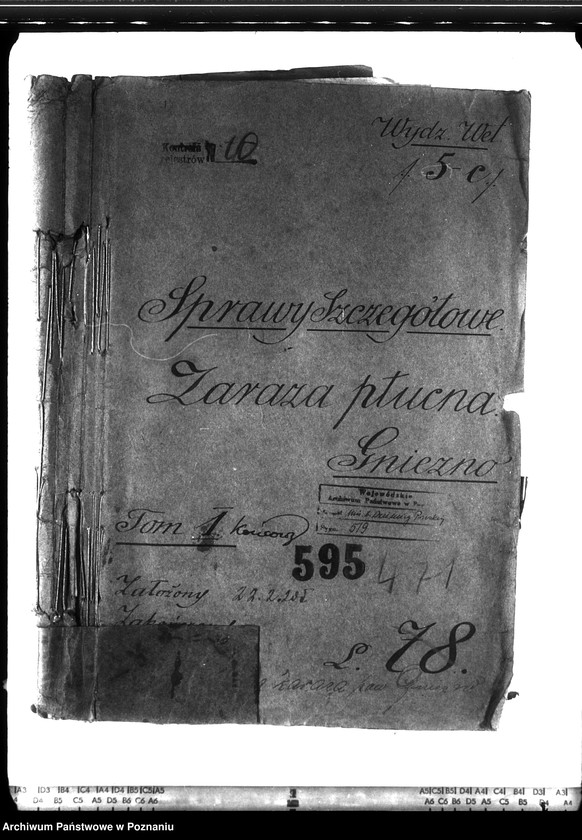 Wydz. Wet
f. 5-c f.
Kontrola
rejestrów № 10
Sprawy Szczegółowe.
Zaraza płucna.
Gniezno
Wojewódzkie
Archiwum Państwowe w P
519
Tom 1
595
471
Założony 22.2.
L. 78.
zaraza Gniezno
A3 D3 B4 C4 A4 D4 B5 C5 A5
D4 B5 C5 A5 D5 B6 C6 A6
A5 C5 B5 D4 A4 C4 B4 D3 A3
A6 C6 B6 D5 A5 C5 B5 D4 A4
Archiwum Państwowe w Poznaniu